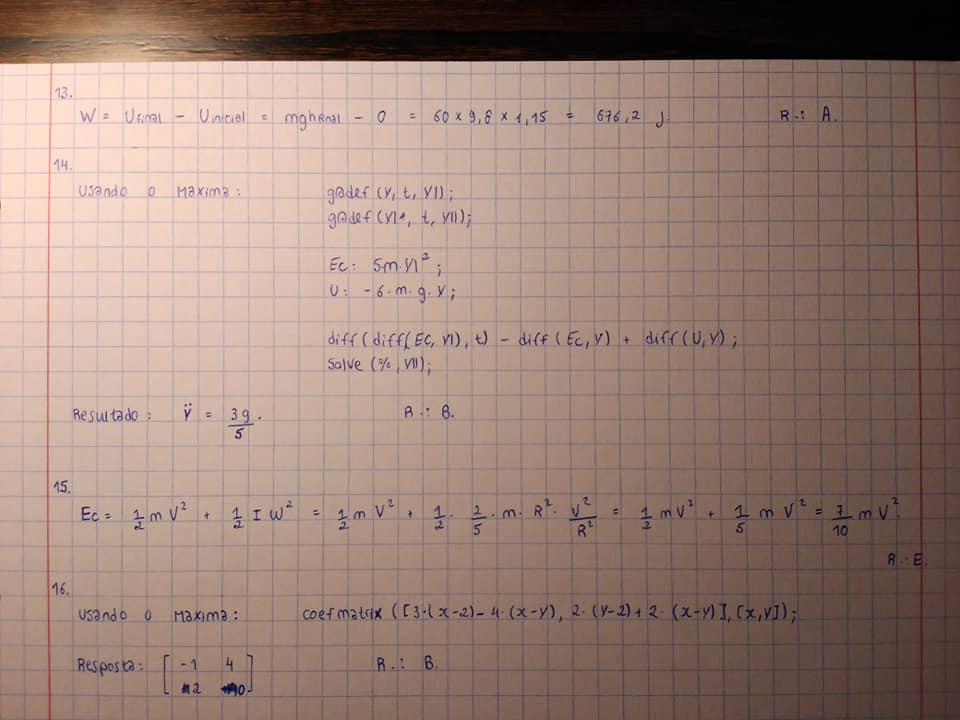 13.
W = Ufinal - Uinicial = mghfinal - 0 = 60 × 9,8 × 1,15 = 676,2 J. R.: A.
14.
Usando o Maxima: gradef (y, t, y1);
gradef (y1, t, y11);
Ec: 5m·y1²;
U: -6·m·g·y;
diff (diff(Ec, y1), t) - diff (Ec, y) + diff (U, y);
Solve (%, y11);
Resultado: ÿ = 3g/5. R.: B.
15.
Ec = 1/2 m V² + 1/2 I W² = 1/2 m V² + 1/2 · 2/5 · m · R² · V²/R² = 1/2 m V² + 1/5 m V² = 7/10 m V².
R.: E.
16.
Usando o Maxima: coefmatrix ([3·(x-2)-4·(x-y), 2·(y-2)+2·(x-y)], [x,y]);
Resposta: [-1 4
2 0] R.: B.